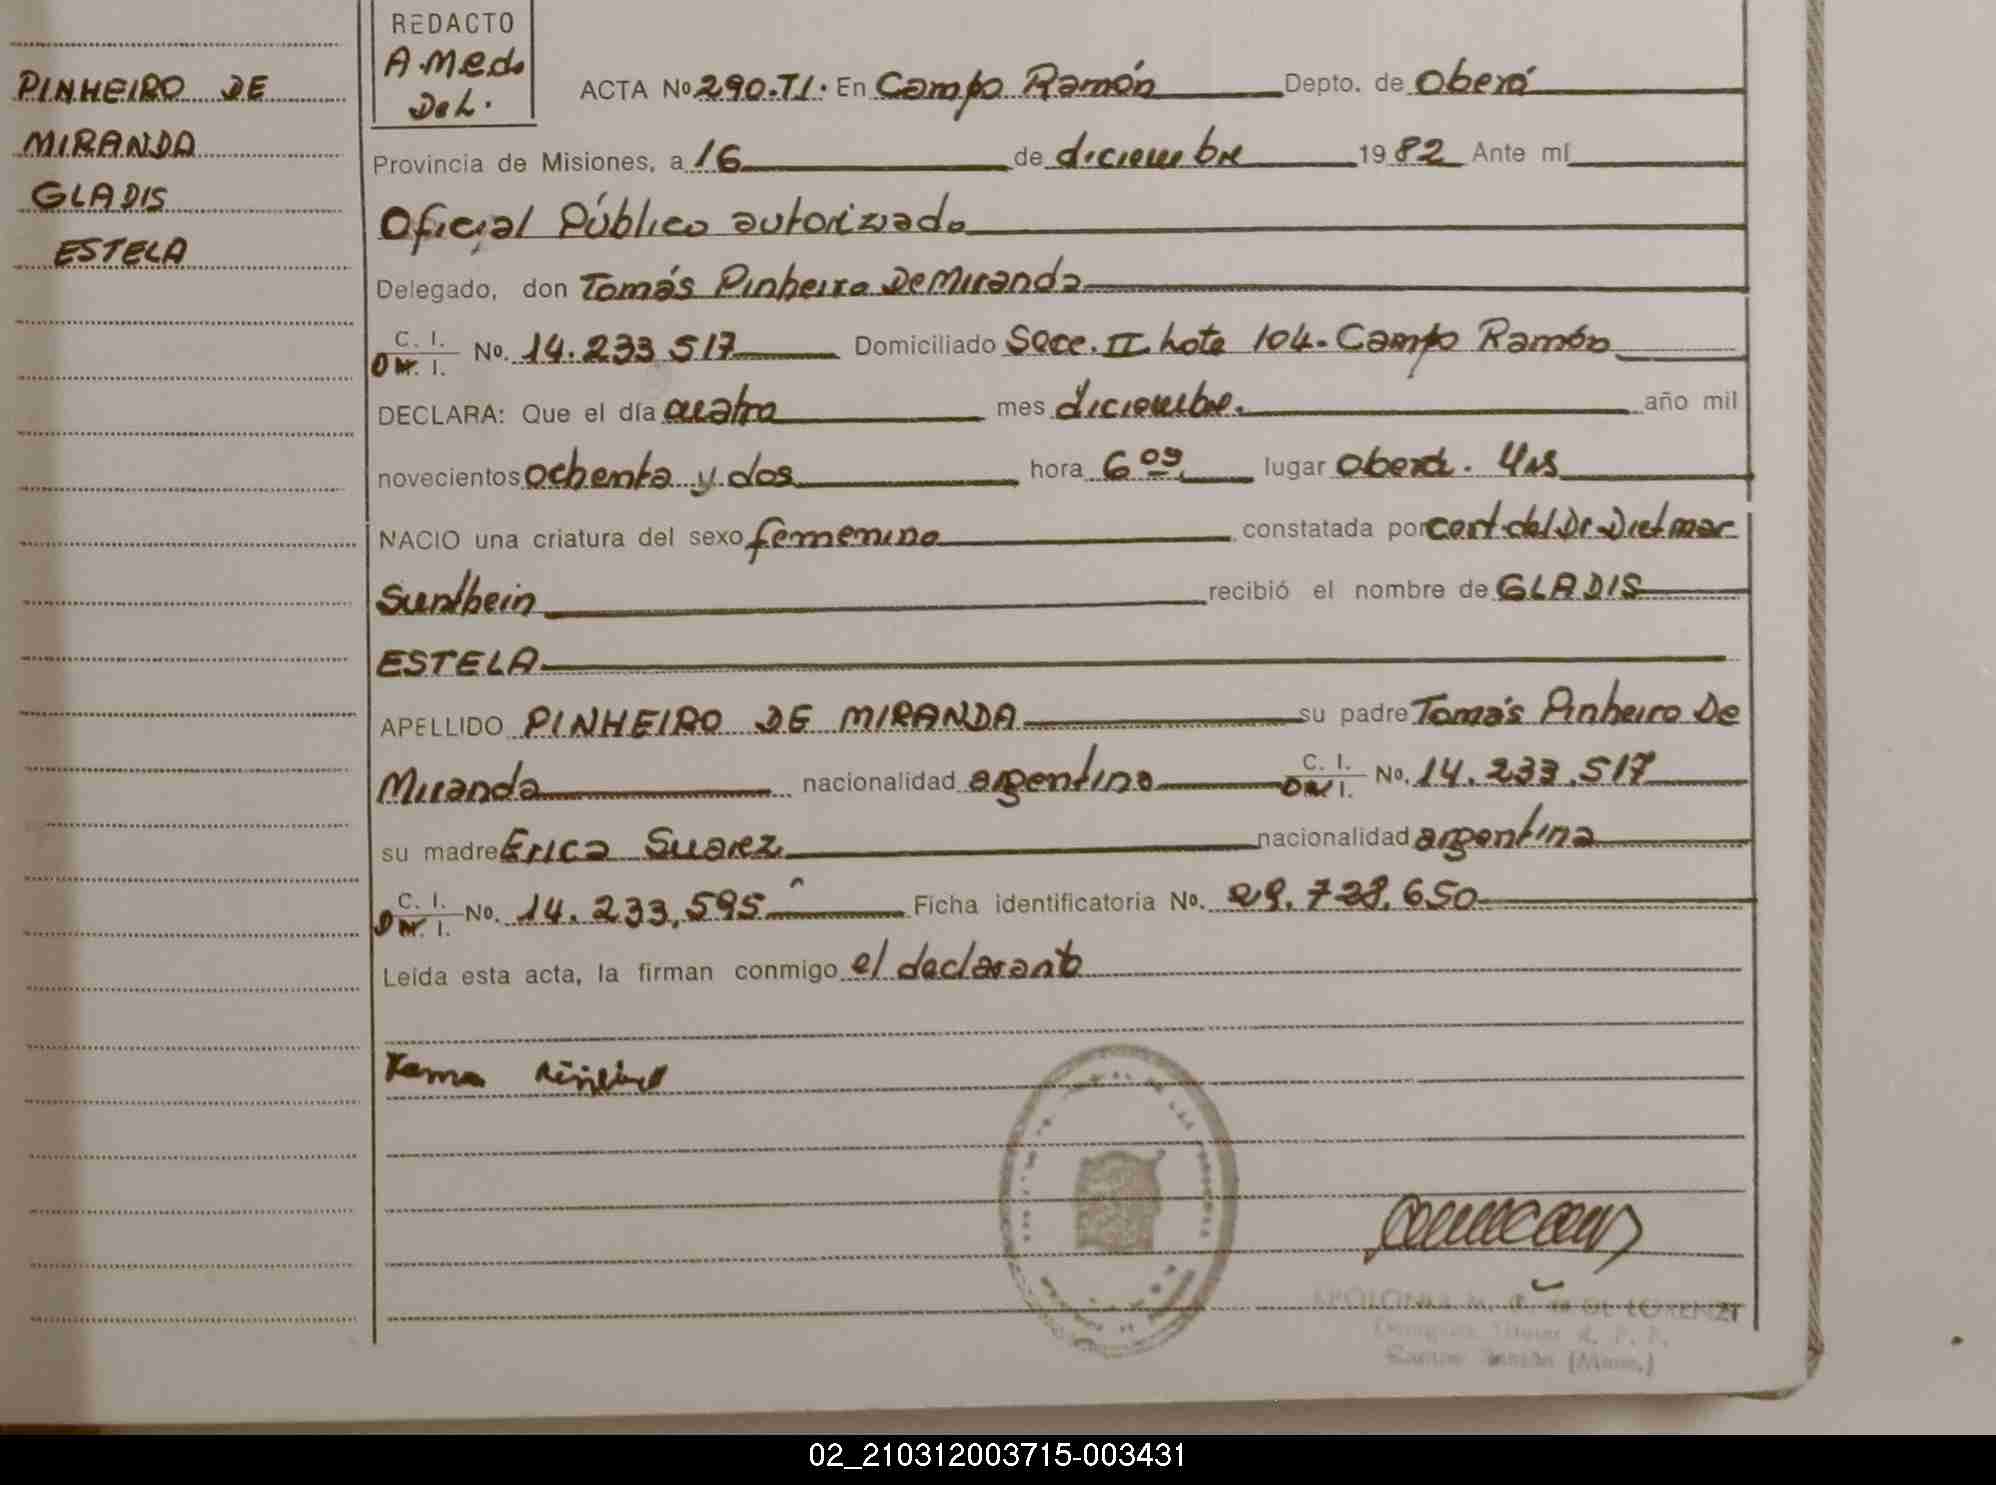 PINHEIRO DE
MIRANDA
GLADIS
ESTELA
REDACTO
A.M e d.
De L.
ACTA No 290.T1. En Campo Ramón Depto. de Oberá
Provincia de Misiones, a 16 de diciembre 1982 Ante mí
Oficial Público autorizado
Delegado, don Tomás Pinheiro De Miranda
C. I.
D N. I. No. 14.233 517 Domiciliado Secc. II Lote 104. Campo Ramón
DECLARA: Que el día cuatro mes diciembre. año mil
novecientos ochenta y dos hora 6 09 lugar Oberá.
NACIO una criatura del sexo femenino constatada por cert. del Dr. Dietmar
recibió el nombre de GLADIS
ESTELA
APELLIDO PINHEIRO DE MIRANDA su padre Tomás Pinheiro De
Miranda nacionalidad argentino C. I. D N I. No. 14.233.517
su madre Erica Suarez nacionalidad argentina
C. I.
D N. I. No. 14.233.595 Ficha identificatoria No. 29.728.650
Leída esta acta, la firman conmigo el declarante
DE LORENZI
02_210312003715-003431